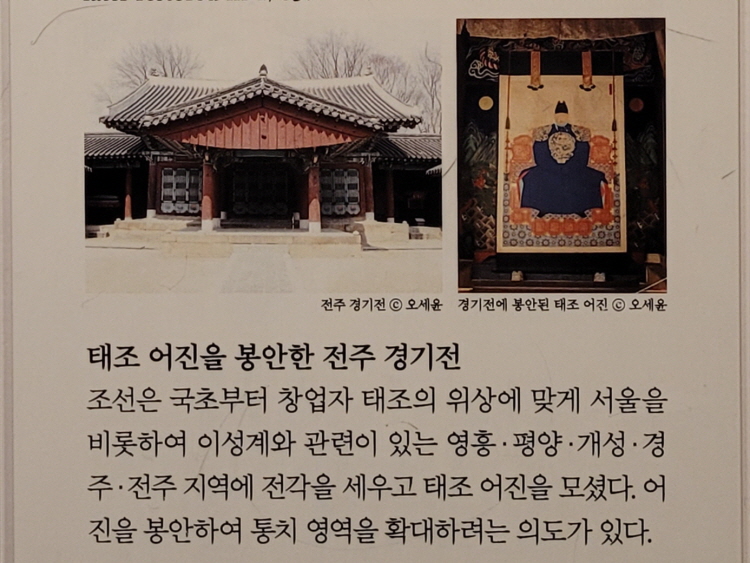 전주 경기전 ⓒ 오세윤
경기전에 봉안된 태조 어진 ⓒ 오세윤
태조 어진을 봉안한 전주 경기전
조선은 국초부터 창업자 태조의 위상에 맞게 서울을
비롯하여 이성계와 관련이 있는 영흥·평양·개성·경
주·전주 지역에 전각을 세우고 태조 어진을 모셨다. 어
진을 봉안하여 통치 영역을 확대하려는 의도가 있다.